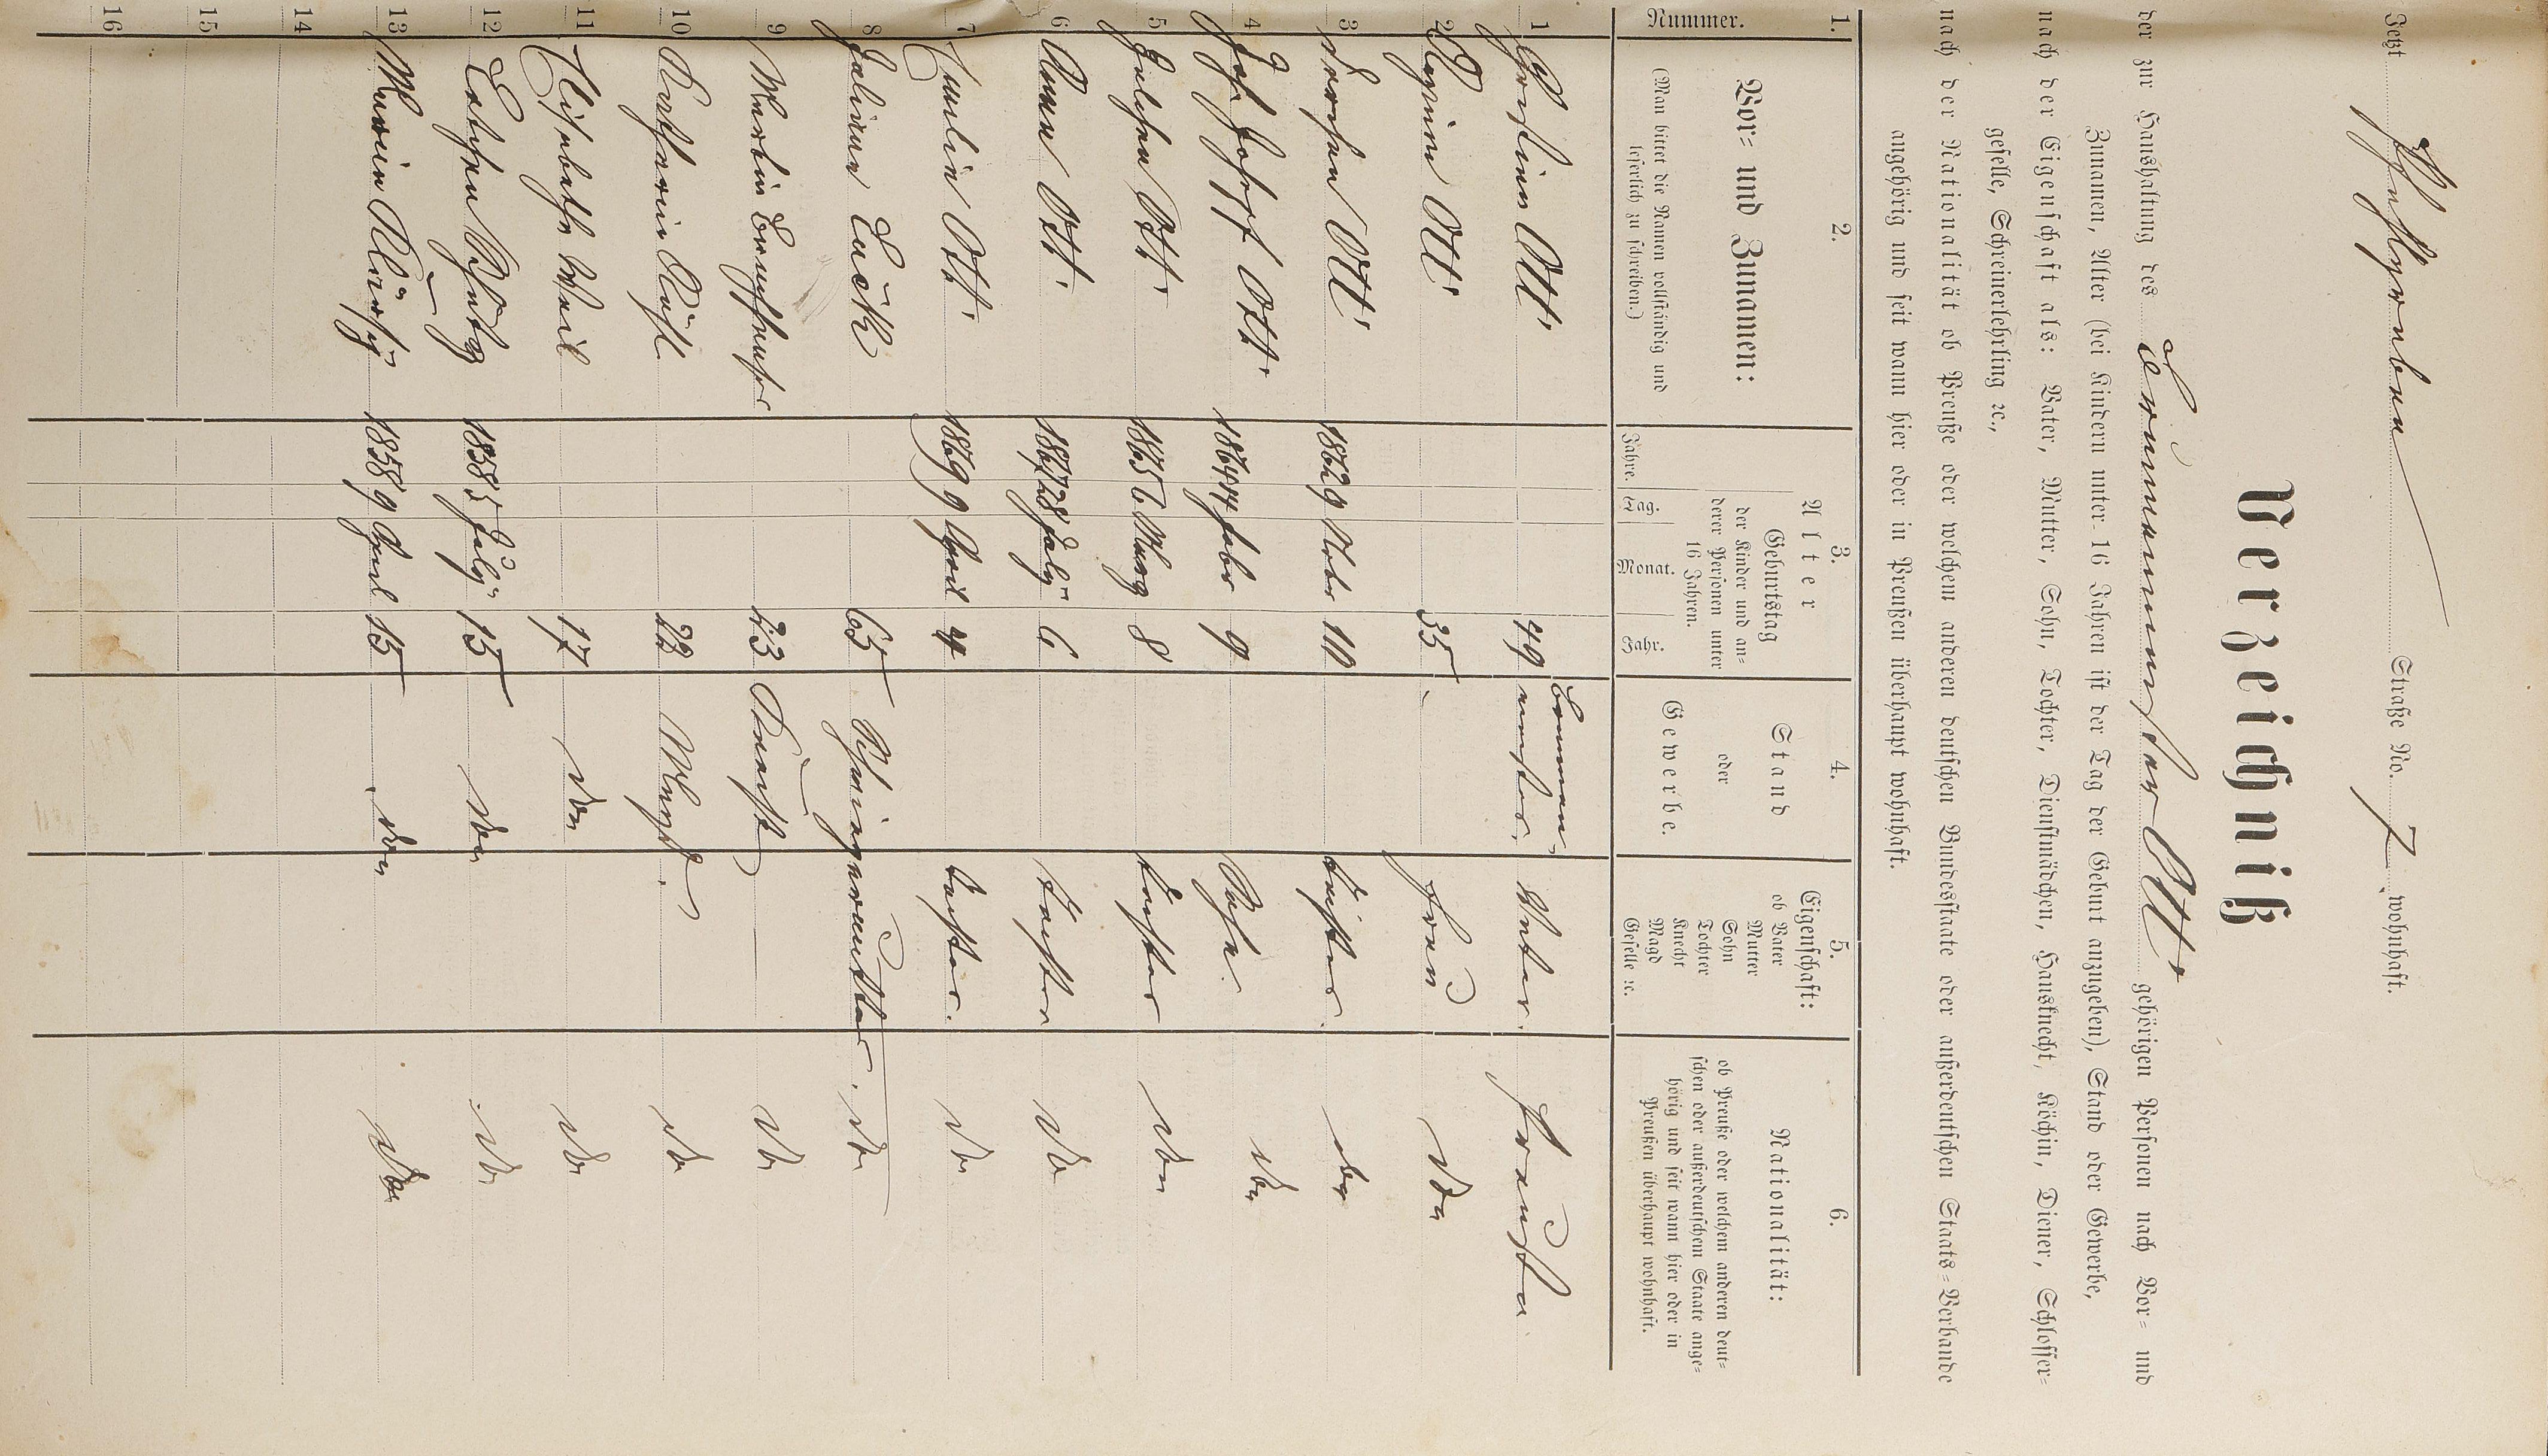 Jetzt Straße No. 7 wohnhaft.
Verzeichniß
der zur Haushaltung des Brunnenmeister Ott gehörigen Personen nach Vor= und
Zunamen, Alter (bei Kindern unter 16 Jahren ist der Tag der Geburt anzugeben), Stand oder Gewerbe,
nach der Eigenschaft als: Vater, Mutter, Sohn, Tochter, Dienstmädchen, Hausknecht, Köchin, Diener, Schlosser=
geselle, Schreinerlehrling ec.,
nach der Nationalität ob Preuße oder welchem anderen deutschen Bundesstaate oder außerdeutschen Staats=Verbande
angehörig und seit wann hier oder in Preußen überhaupt wohnhaft.
1. 2. 3. 4. 5. 6.
Nummer.
Vor= und Zunamen:
(Man bittet die Namen vollständig und
leserlich zu schreiben.)
Alter
Geburtstag
der Kinder und an=
derer Personen unter
16 Jahren.
Jahre. Tag. Monat. Jahr.
Stand
oder
Gewerbe.
Eigenschaft:
ob Vater
Mutter
Sohn
Tochter
Knecht
Magd
Geselle ec.
Nationalität:
ob Preuße oder welchem anderen deut=
schen oder außerdeutschem Staate ange=
hörig und seit wann hier oder in
Preußen überhaupt wohnhaft.
1 Ott 49 Brunnen meister. Vater. Preußen
2 Ott 35 Frau do
3 Ott 1862 9 Nobr 10 Tochter do
4 Joh Josef Ott 1864 Febr 9 Sohn. do
5 Julchen Ott 1865 6 März 8 Tochter do
6 Anna Ott. 1867 28 July 6 Tochter do
7 Ott. 1869 9 April 4 Tochter. do
8 Juliana Lück 65 Schwiegermutter. do
9 Martin 23 Knecht do
10 22 Magd. do
11 Elisabetha Weil 17 do do
12 1858 5 July 15 do do
13 1858 9 April 15 do do
14
15
16